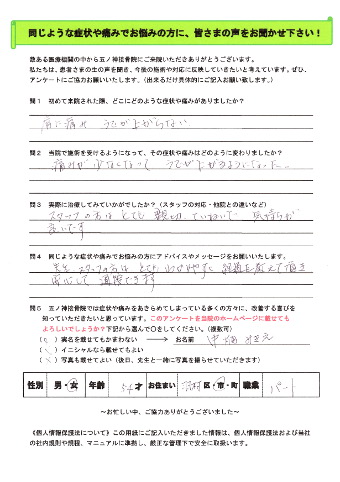 同じような症状や痛みでお悩みの方に、皆さまの声をお聞かせ下さい！
数ある医療機関の中から五ノ神接骨院にご来院いただきありがとうございます。
私たちは、患者さまの生の声を聞き、今後の施術や対応に反映していきたいと考えています。ぜひ、
アンケートにご協力お願いいたします。（出来るだけ具体的にご記入お願い致します。）
問１ 初めて来院された際、どこにどのような症状や痛みがありましたか？
肩に痛み うでが上がらない
問２ 当院で施術を受けるようになって、その症状や痛みはどのように変わりましたか？
痛みが少なくなって うでが上がるようになった
問３ 実際に治療してみていかがでしたか？（スタッフの対応・他院との違いなど）
スタッフの方は とても 親切 ていねいで 気持ちが
良いです
問４ 同じような症状や痛みでお悩みの方にアドバイスやメッセージをお願いします。
先生、スタッフの方は とても
安心して 通院できます
問５ 五ノ神接骨院では症状や痛みをあきらめてしまっている多くの方々に、改善する喜びを
知っていただきたいと思っています。このアンケートを当院のホームページに載せても
よろしいでしょうか？下記から選んで○をしてください。（複数可）
（ ）実名を載せてもかまわない → お名前
（ ）イニシャルなら載せてもよい
（ ）写真も載せてよい（後日、先生と一緒に写真を撮らせていただきます）
性別 男・女 年齢 才 お住まい 区・市・町 職業 パート
～お忙しい中、ご協力ありがとうございました～
《個人情報保護法について》この用紙にご記入いただきました情報は、個人情報保護法および当社
の社内規則や規程、マニュアルに準拠し、厳正な管理下で安全に取扱います。